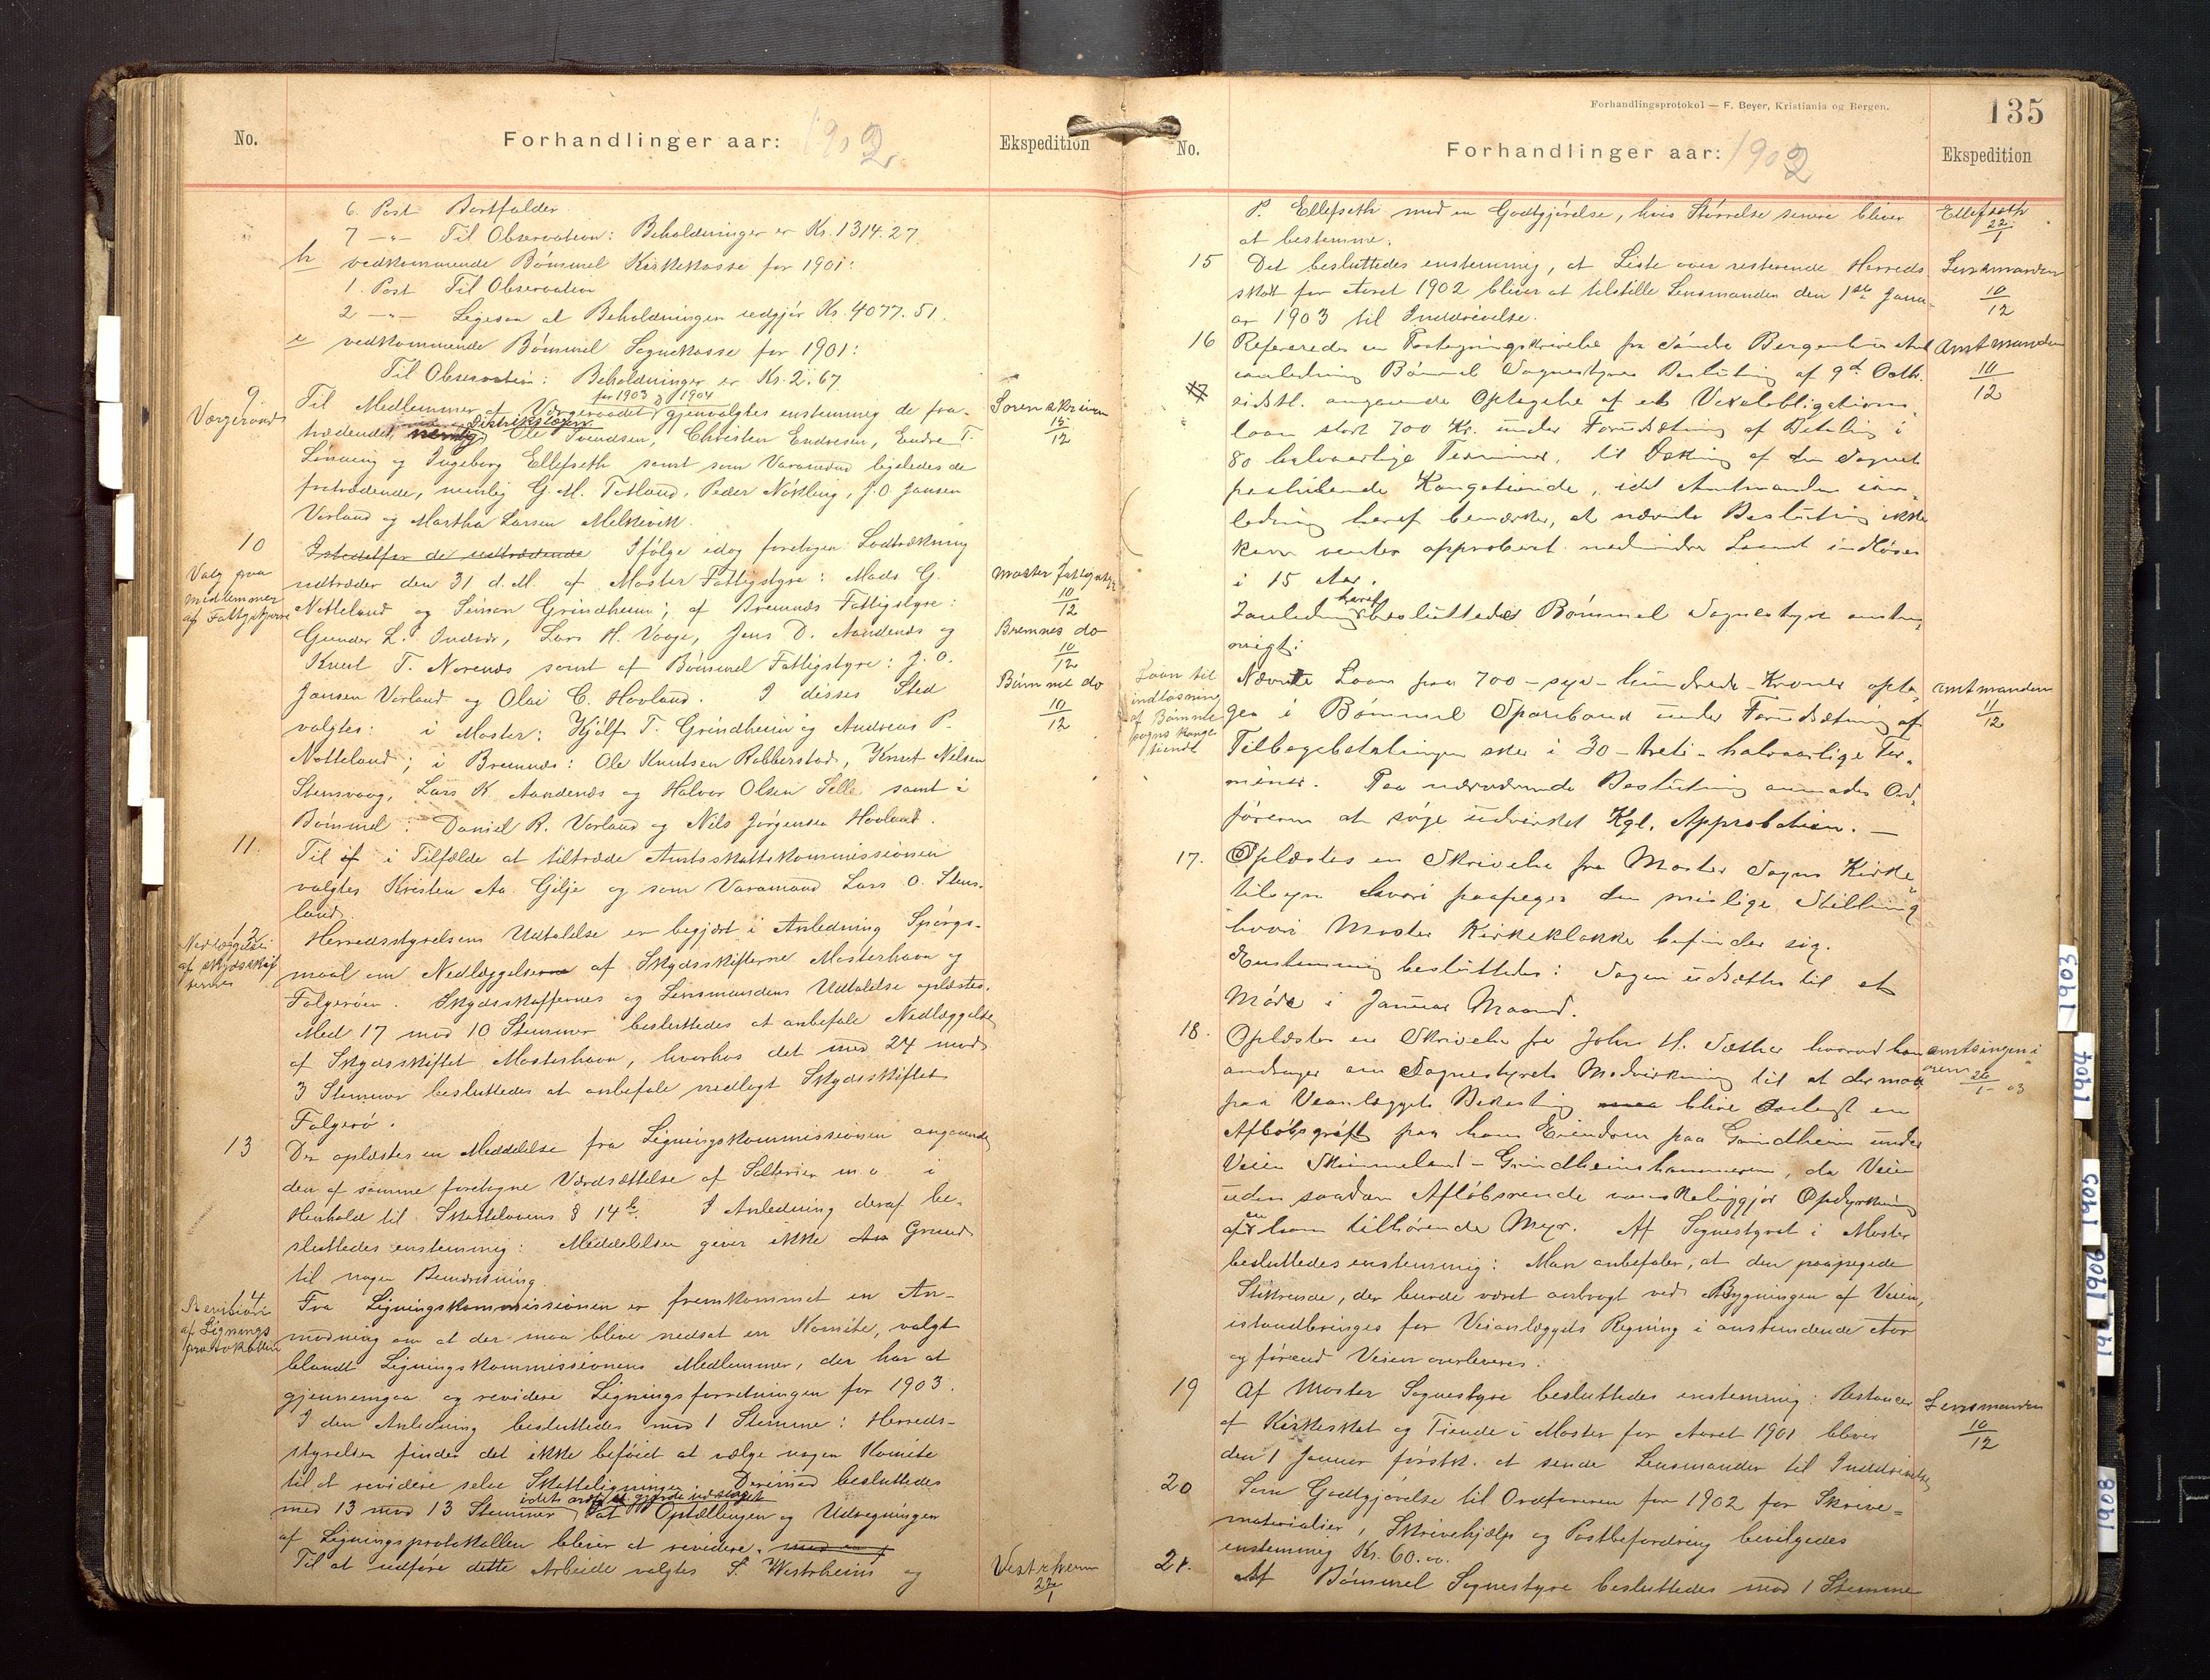 No.
Forhandlinger aar: 1902
Ekspedition
6. Post Bortfalder
7 -"- Til Observation: Beholdninger er Kr. 1314.27
h vedkommende Bömmel Kirkekasse for 1901:
1. Post Til Observation
2 -"- Ligesaa at Beholdningen udgjör Kr. 4077.51.
i vedkommende Bömmel Sognekasse for 1901:
Til Observation: Beholdninger er Kr. 2.67
for 1903 og 1904
9. Til Medlemmer af Værgeraadet gjenvalgtes enstemmig de fra-
Værgeraad
Sorenskriveren 15/12
trædende, nemlig Distriktslægen Ole Svendsen, Christen Endresen, Endre T.
Lönning og Ingeborg Ellefseth samt som Varamænd ligeledes de
fratrædende, nemlig G. M. Totland, Peder Nökling, J. O. Jansen
Vorland og Martha Larsen Melkevik.
10 Istedetfor de udtrædende Ifölge idag foretagen Lodtrækning
Valg paa medlemmer af Fattigstyrerne
udtræder den 31 d. M. af Moster Fattigstyre: Mads G.
Moster fattigstyre 10/12
Notteland og Simon Grindheim; af Bremnæs Fattigstyre:
Gunder L. Indvær, Lars H. Vaage, Jens D. Aandenæs og
Bremnes do 10/12
Knut T. Norenæs samt af Bömmel Fattigstyre: J. O.
Jansen Vorland og Olai C. Hovland. I disses Sted
Bömmel do 10/12
valgtes: i Moster: Kjölf T. Grindheim og Andreas P.
Notteland; i Bremnæs: Ole Knutsen Robberstad, Knut Nilsen
Stensvaag, Lars K. Aandenæs og Halvor Olsen Selle samt i
Bömmel: Daniel R. Vorland og Nils Jörgensen Hovland.
11. Til if i Tilfælde at tiltræde Amtsskattekommissionen
valgtes Kristen Aa. Gilje og som Varamand Lars O. Stens-
land.
12 Herredsstyrelsens Udtalelse er begjært i Anledning Spörgs-
Nedlæggelse af skydsskifterne
maal om Nedlæggelserne af Skydsskifterne Mosterhavn og
Folgeröen. Skydsskaffernes og Lensmandens Udtalelse oplæstes.
Med 17 mod 10 Stemmer besluttedes at anbefale Nedlæggelse
af Skydsskiftet Mosterhavn, hvorhos det med 24 mod
3 Stemmer besluttedes at anbefale nedlagt Skydsskiftet
Folgerö.
13 Der oplæstes en Meddelelse fra Ligningskommissionen angaaende
den af samme foretagne Værdsættelse af Salterier m. v. i
Henhold til Skattelovens § 14 b. I Anledning deraf be-
sluttedes enstemmig: Meddelelsen giver ikke An Grund
til nogen Bemærkning.
14 Fra Ligningskommissionen er fremkommet en An-
Revision af Lignings protokollen
modning om at der maa blive nedsat en Komite, valgt
blandt Ligningskommissionens Medlemmer, der har at
gjennemgaa og revidere Ligningsforretningen for 1903.
I den Anledning besluttedes mod 1 Stemme: Herreds-
styrelsen finder det ikke beföiet at vælge nogen Komite
til at revidere selve Skatteligningen. Derimod besluttedes
med 13 mod 13 Stemmer, idet ordf. gjorde udslaget at Optællingen og Udregningen
af Ligningsprotokollen bliver at revidere.
Til at udföre dette Arbeide valgtes S. Westrheim og
Vestrheim 22/1
Forhandlingsprotokol — F. Beyer, Kristiania og Bergen.
135
No.
Forhandlinger aar: 1902
Ekspedition
P. Ellefseth mod en Godtgjörelse, hvis Störrelse senere bliver
Ellefseth 22/1
at bestemme.
15 Det besluttedes enstemmig, at Liste over resterende Herreds
Lensmanden 10/12
skat for Aaret 1902 bliver at tilstille Lensmanden den 1ste Janu-
ar 1903 til Inddrivelse.
16 Refereredes en Paategningsskrivelse fra Söndre Bergenhus Amt
Amtmanden 10/12
ianledning Bömmel Sognestyres Beslutning af 9de Octb.
sidstl. angaaende Optagelse af et Vexelobligations-
laan stort 700 Kr. under Forudsætning af Betaling i
80 halvaarlige Terminer, til Dækning af den Sognet
paahvilende Kongetiende, idet Amtmanden ian-
ledning heraf bemærker, at nævnte Beslutning ikke
kan ventes approbert medmindre Laanet indlöses
i 15 Aar.
Ianledning heraf besluttedes Bömmel Sognestyre enstem-
migt:
Laan til indlösning af Bömmel sogns Kongetiende
Nævnte Laan paa 700 - syv - hundrede - Kroner opta-
Amtmanden 11/12
ges i Bömmel Sparebank under Forudsætning af
Tilbagebetalingen sker i 30 - treti - halvaarlige Ter-
miner. Paa nærværende Beslutning anmodes Ord-
föreren at söge udvirket Kgl. Approbation. —
17. Oplæstes en Skrivelse fra Moster Sogns Kirke-
tilsyn hvori paapeges den mislige Stilling
hvori Moster Kirkeklokke befinder sig.
Enstemmig besluttedes: Sagen udsættes til et
Möde i Januar Maaned.
18. Oplæstes en Skrivelse fra John H. Sæther hvorved han
Amtsingeniören 26/1-03
andrager om Sognestyrets Medvirkning til at der maa
paa Veianlæggets Bekostning blive anlagt en
Aflöbsgröft paa hans Eiendom paa Grindheim under
Veien Skimmeland - Grindheimshammeren, da Veien
uden saadan Aflöbsrende vanskeliggjör Opdyrkning
af en ham tilhörende Myr. Af Sognestyret i Moster
besluttedes enstemmig: Man anbefaler, at den paapegede
Stikrende, der burde været anbragt ved Bygningen af Veien,
istandbringes for Veianlæggets Regning i anstundende Aar
og förend Veien overleveres.
19 Af Moster Sognestyre besluttedes enstemmig: Restancer
Lensmanden 10/12
af Kirkeskat og Tiende i Moster for Aaret 1901 bliver
den 1 Januar förstk. at sende Lensmanden til Inddrivelse
20 Som Godtgjörelse til Ordföreren for 1902 for Skrive-
materialier, Skrivehjælp og Postbefordring bevilgedes
enstemmig Kr. 60.00.
21. Af Bömmel Sognestyre besluttedes mod 1 Stemme
1903
1904
1905
1906
1908